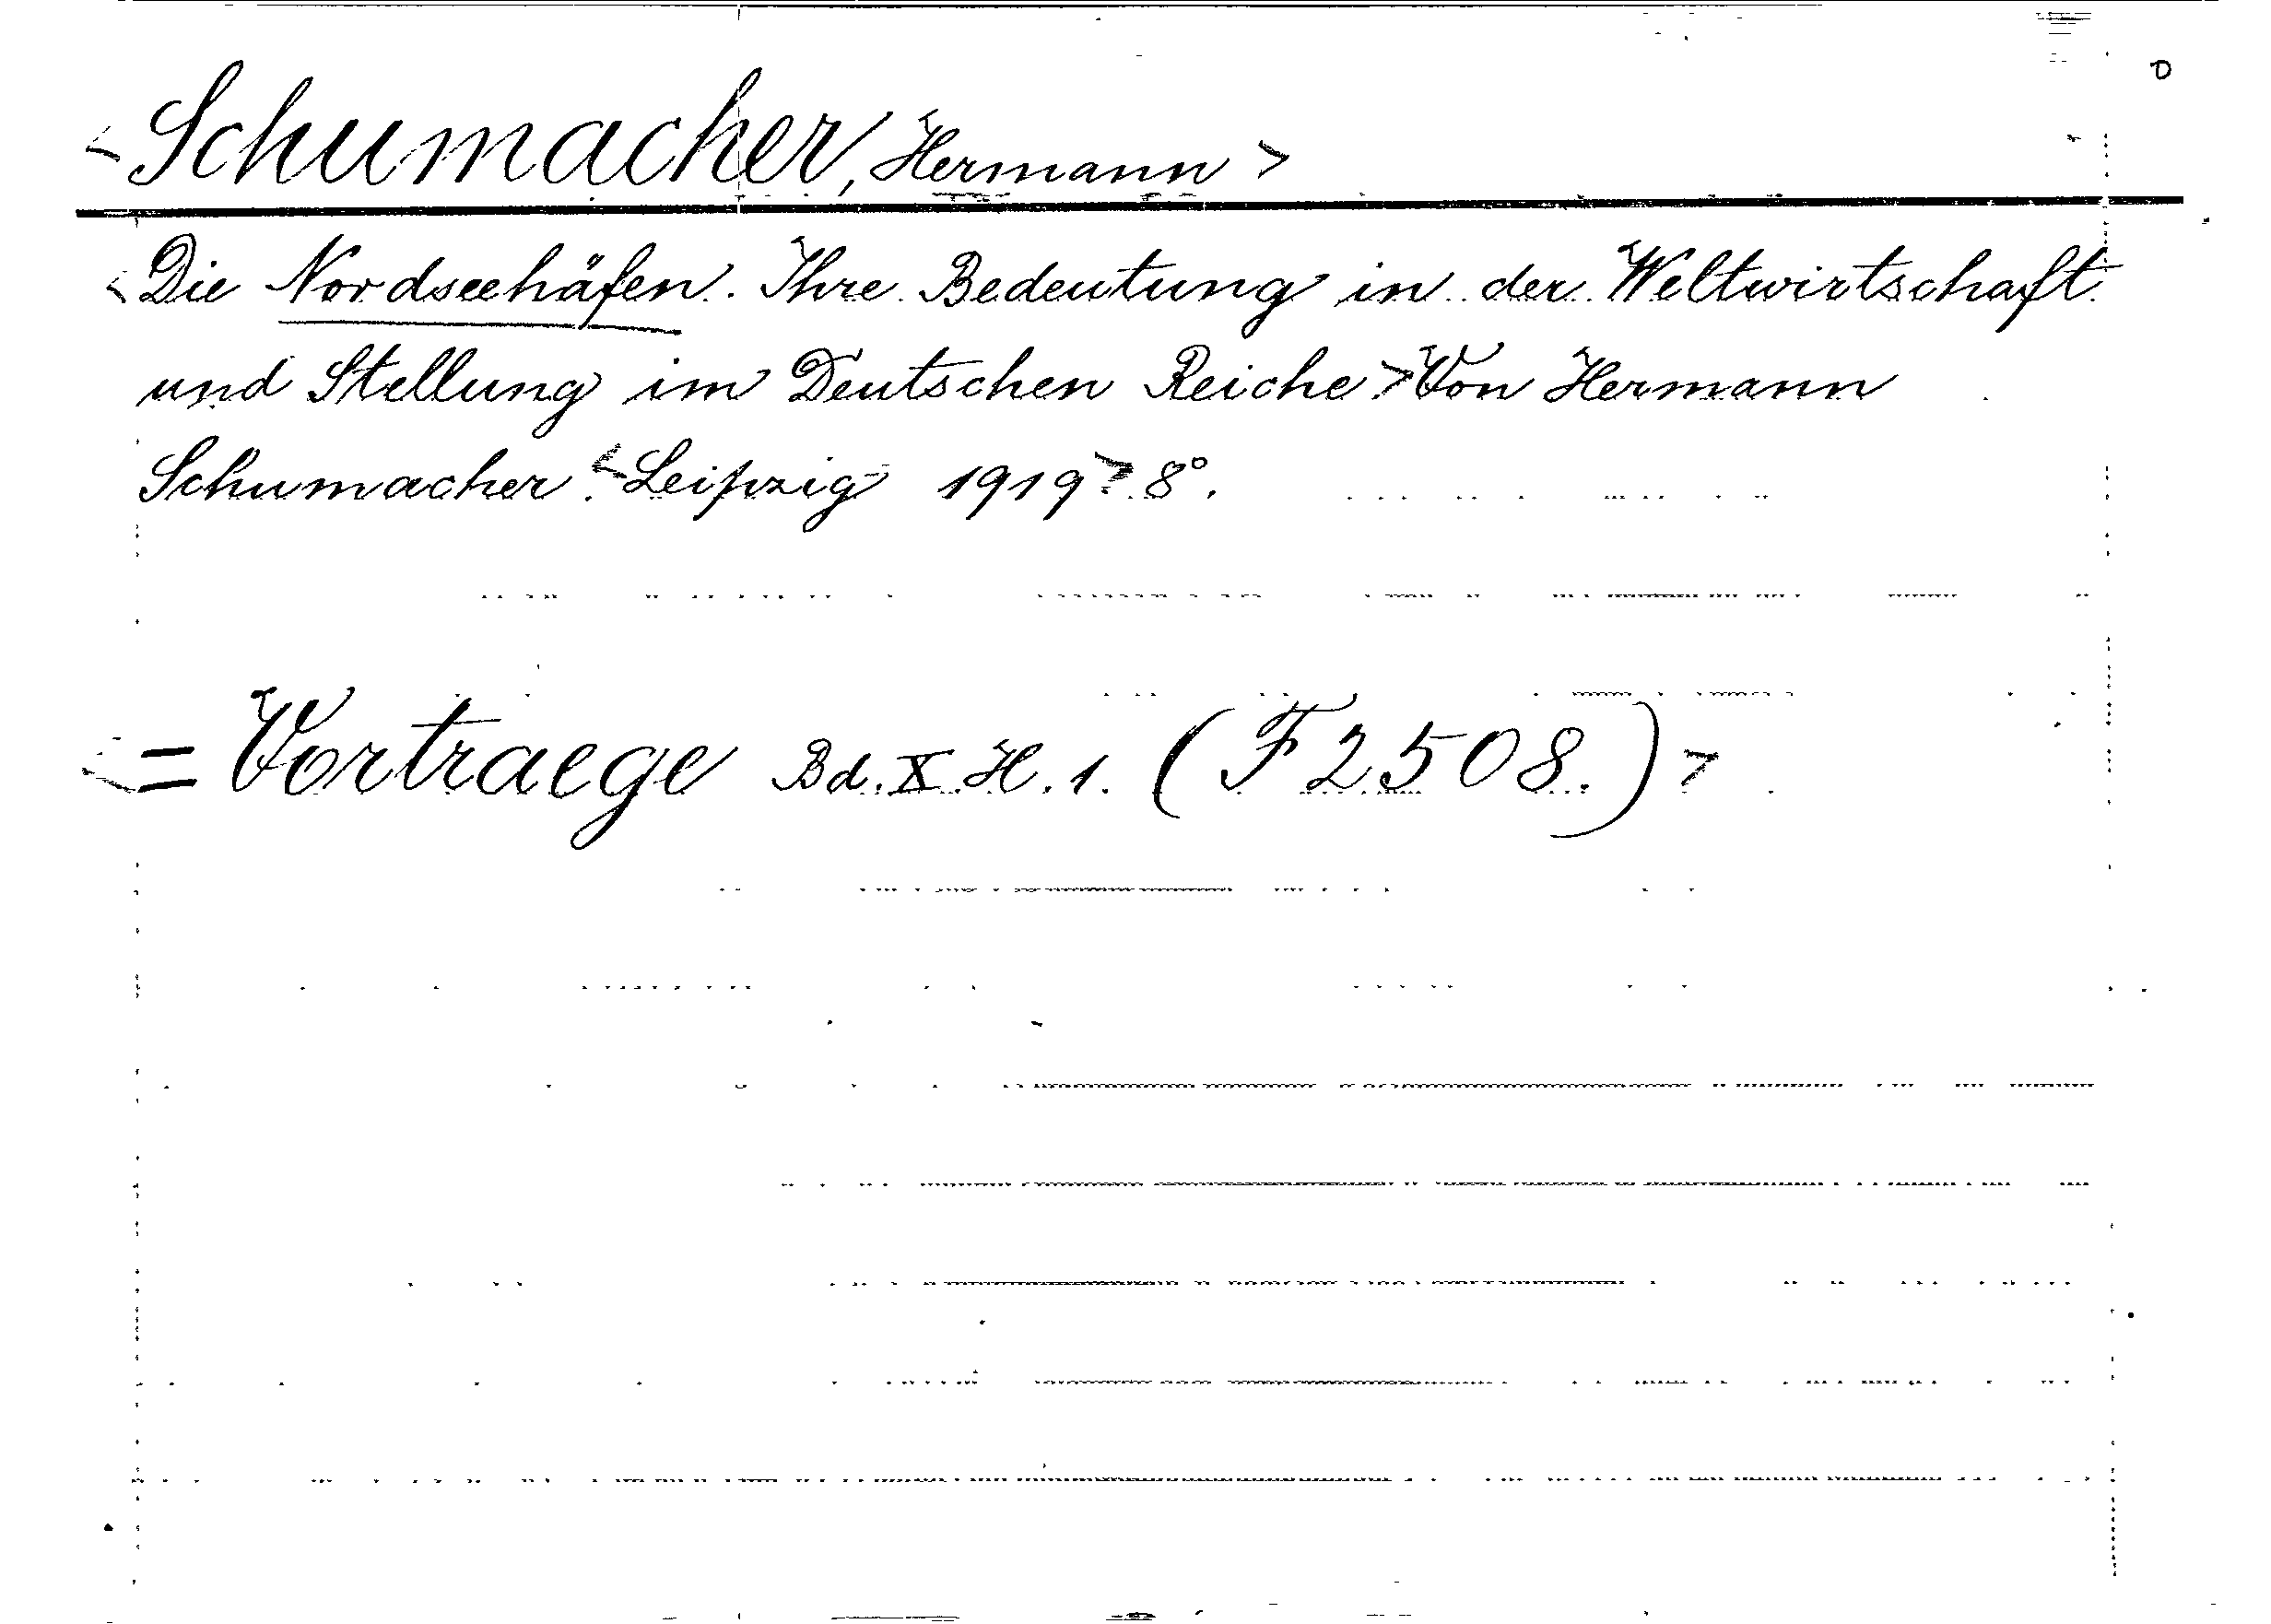 D
<Schumacher, Hermann>
<Die Nordseehäfen. Ihre Bedeutung in der Weltwirtschaft
und Stellung im Deutschen Reiche.> Von Hermann
Schumacher. <Leipzig 1919> 8°.
<= Vortraege Bd. X H. 1. (F 2508.)>